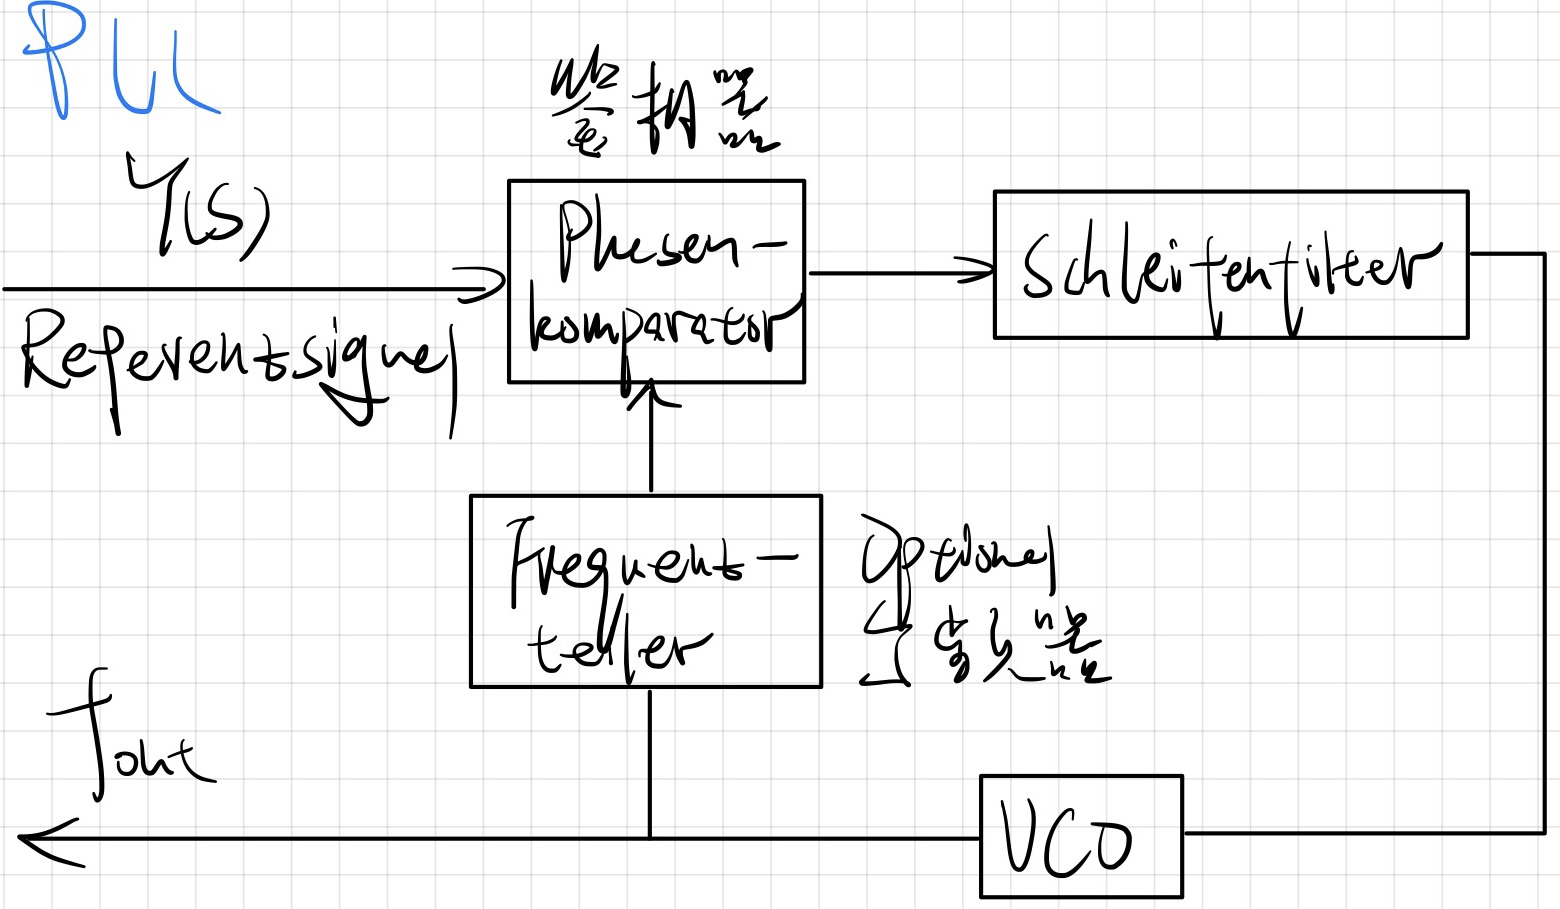 PLL
鉴相器
Y(s)
Referenzsignal
Phasen-
komparator
Schleifenfilter
Frequenz-
teiler
Optional
fout
VCO